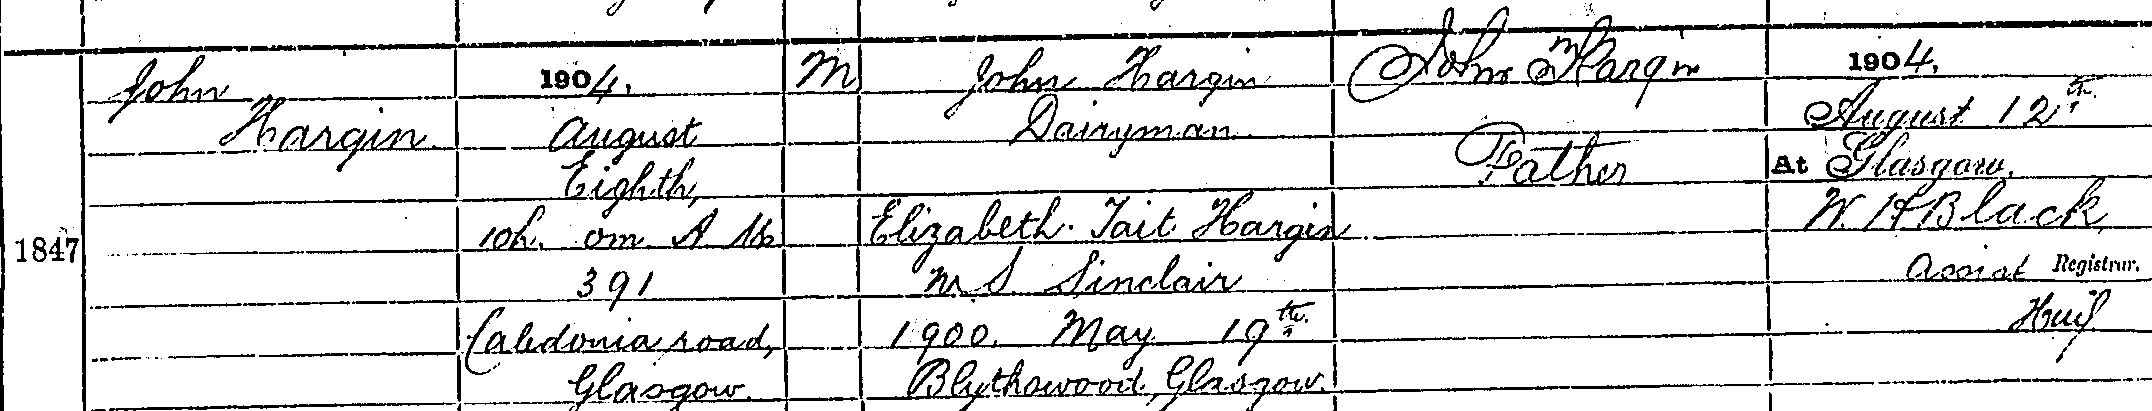 1847
John
Hargin
1904.
August
Eighth,
10h. 0m. A M
391
Caledonia road,
Glasgow.
M
John Hargin
Dairyman
Elizabeth Tait Hargin
M.S. Sinclair
1900. May 19th
Blythswood, Glasgow.
John Hargin
Father
1904.
August 12th
At Glasgow.
W. H Black,
Assist Registrar.